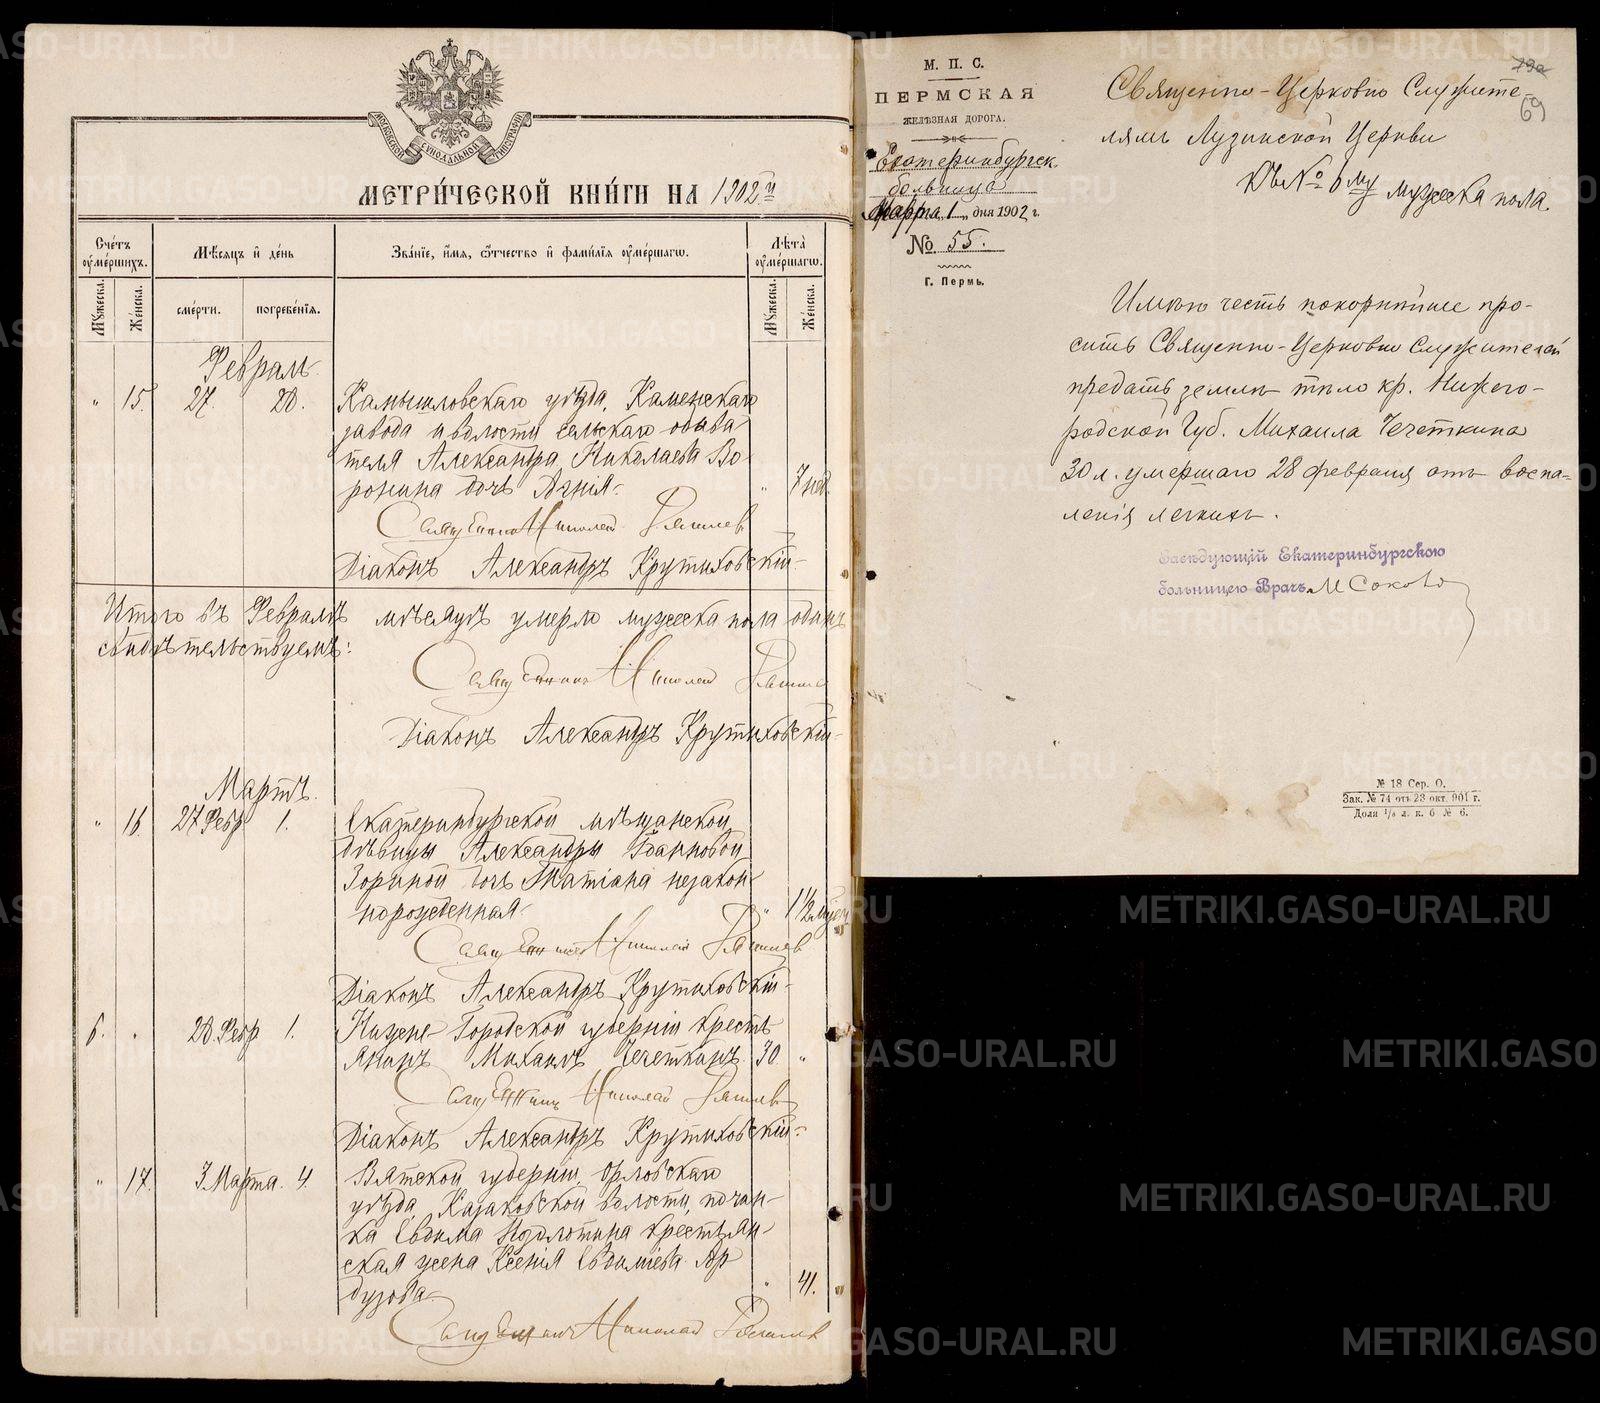 МОСКОВСКОЙ СѴНОДАЛЬНОЙ ТИПОГРАФІИ
МЕТРИ́ЧЕСКОЙ КНИ́ГИ НА 1902 й
Сче́тъ ᲂумершихъ.
Мѣ́сяцъ и день
Зва́нїе, и́мя, ѻ҆́тчество и фами́лїя ᲂуме́ршагѡ.
Лѣта̀ ᲂуме́ршагѡ.
Мꙋ́жеска.
Же́нска.
сме́рти.
погребе́нїя.
Мꙋ́жеска.
Же́нска.
Февраль
" 15. 27. 28. Камышловскаго уѣзда, Каменскаго
завода и волости сельскаго обыва
теля Александра Николаева Во-
ронина дочь Агнія " 7 нед.
Священникъ Николай
Діаконъ Александръ Крутиховскій
Итого въ Февралѣ мѣсяцѣ умерло мужеска пола одинъ
свидѣтельствуемъ:
Священникъ Николай
Діаконъ Александръ Крутиховскій
Мартъ.
" 16. 27 Февр 1. Екатеринбургской мѣщанской
дѣвицы Александры Іоанновой
Зориной дочь Татіана незакон-
норожденная " 1 1/2
Священникъ Николай
Діаконъ Александръ Крутиховскій
6. " 28. Февр 1. Нижне Городской губерніи кресть
янинъ Михаилъ Чечеткинъ 30 "
Священникъ Николай
Діаконъ Александръ Крутиховскій
" 17. 3 Марта. 4. Вятской губерніи, Орловскаго
уѣзда, Казаковской волости, почин-
ка Евдима крестьян-
ская жена Ксенія Евдиміева Ар
бузова " 41.
Священникъ Николай
М. П. С.
ПЕРМСКАЯ
ЖЕЛѢЗНАЯ ДОРОГА.
Екатеринбургск.
больница
Марта „ 1 „ дня 1902 г.
№ 55.
Г. Пермь.
69
Священно-Церковно Служите-
лямъ Лузинской Церкви
Къ № 6 му мужеска пола.
Имѣю честь покорнѣйше про-
сить Священно-Церковно Служителей
предать землѣ тѣло кр. Нижего-
родской Губ. Михаила Чечеткина
30 л. умершаго 28 февраля отъ воспа-
ленія легкихъ.
Завѣдующій Екатеринбургскою
больницею Врачъ М Соково
№ 18 Сер. О.
Зак. № 74 отъ 23 окт. 901 г.
Доля 1/8 л. к. б № 6.
METRIKI.GASO-URAL.RU